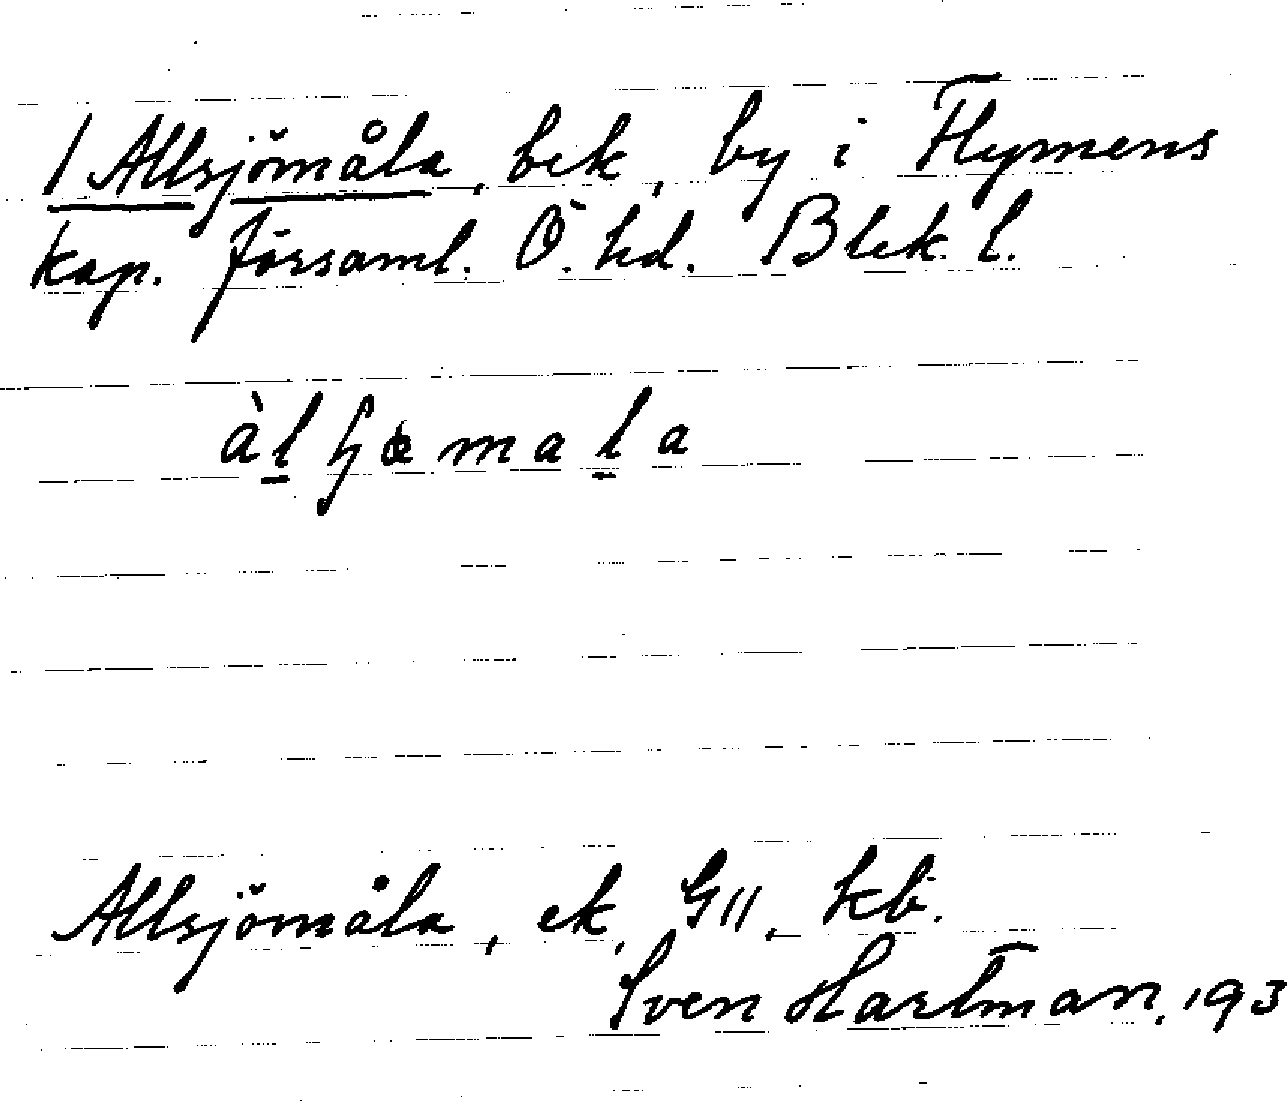 / Allsjömåla, bek, by i Flymens
kap. församl. Ö. hd. Blek. l.
Allsjömåla, ek, G11, kb.
Sven Hartman. 193